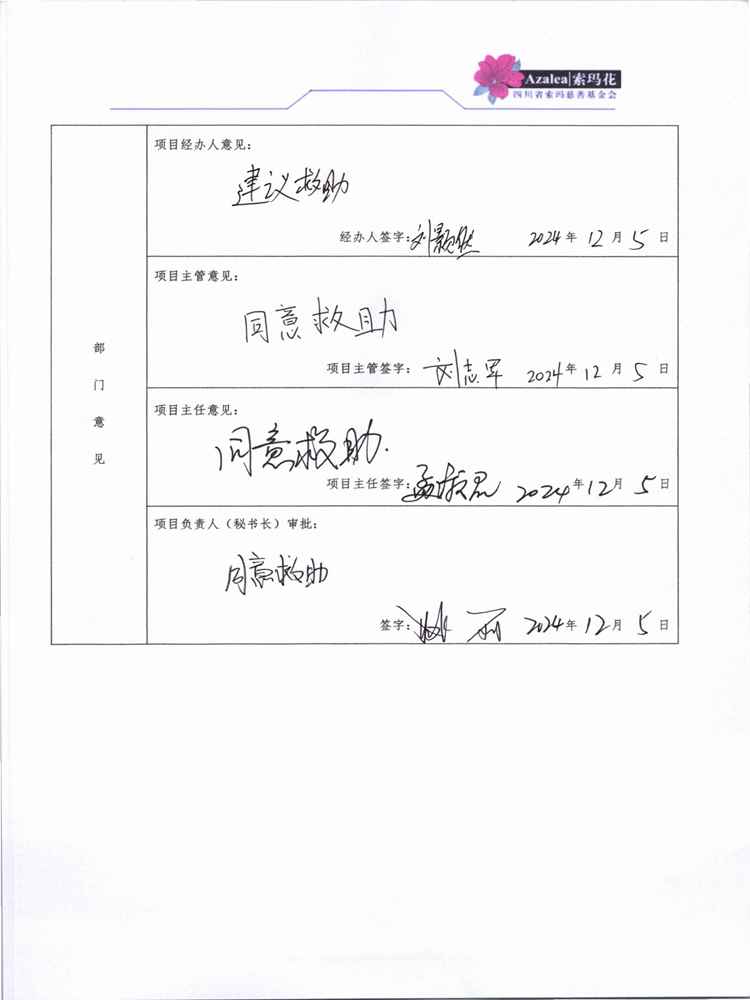 Azalea|索玛花
四川省索玛慈善基金会
部门意见
项目经办人意见：
建议救助
经办人签字：刘颢然 2024年12月5日
项目主管意见：
同意救助
项目主管签字：刘志军 2024年12月5日
项目主任意见：
同意救助.
项目主任签字： 2024年12月5日
项目负责人（秘书长）审批：
同意救助
签字： 丽 2024年12月5日